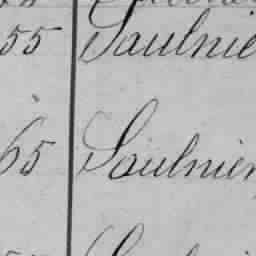 55 Saulnie
65 Saulnier